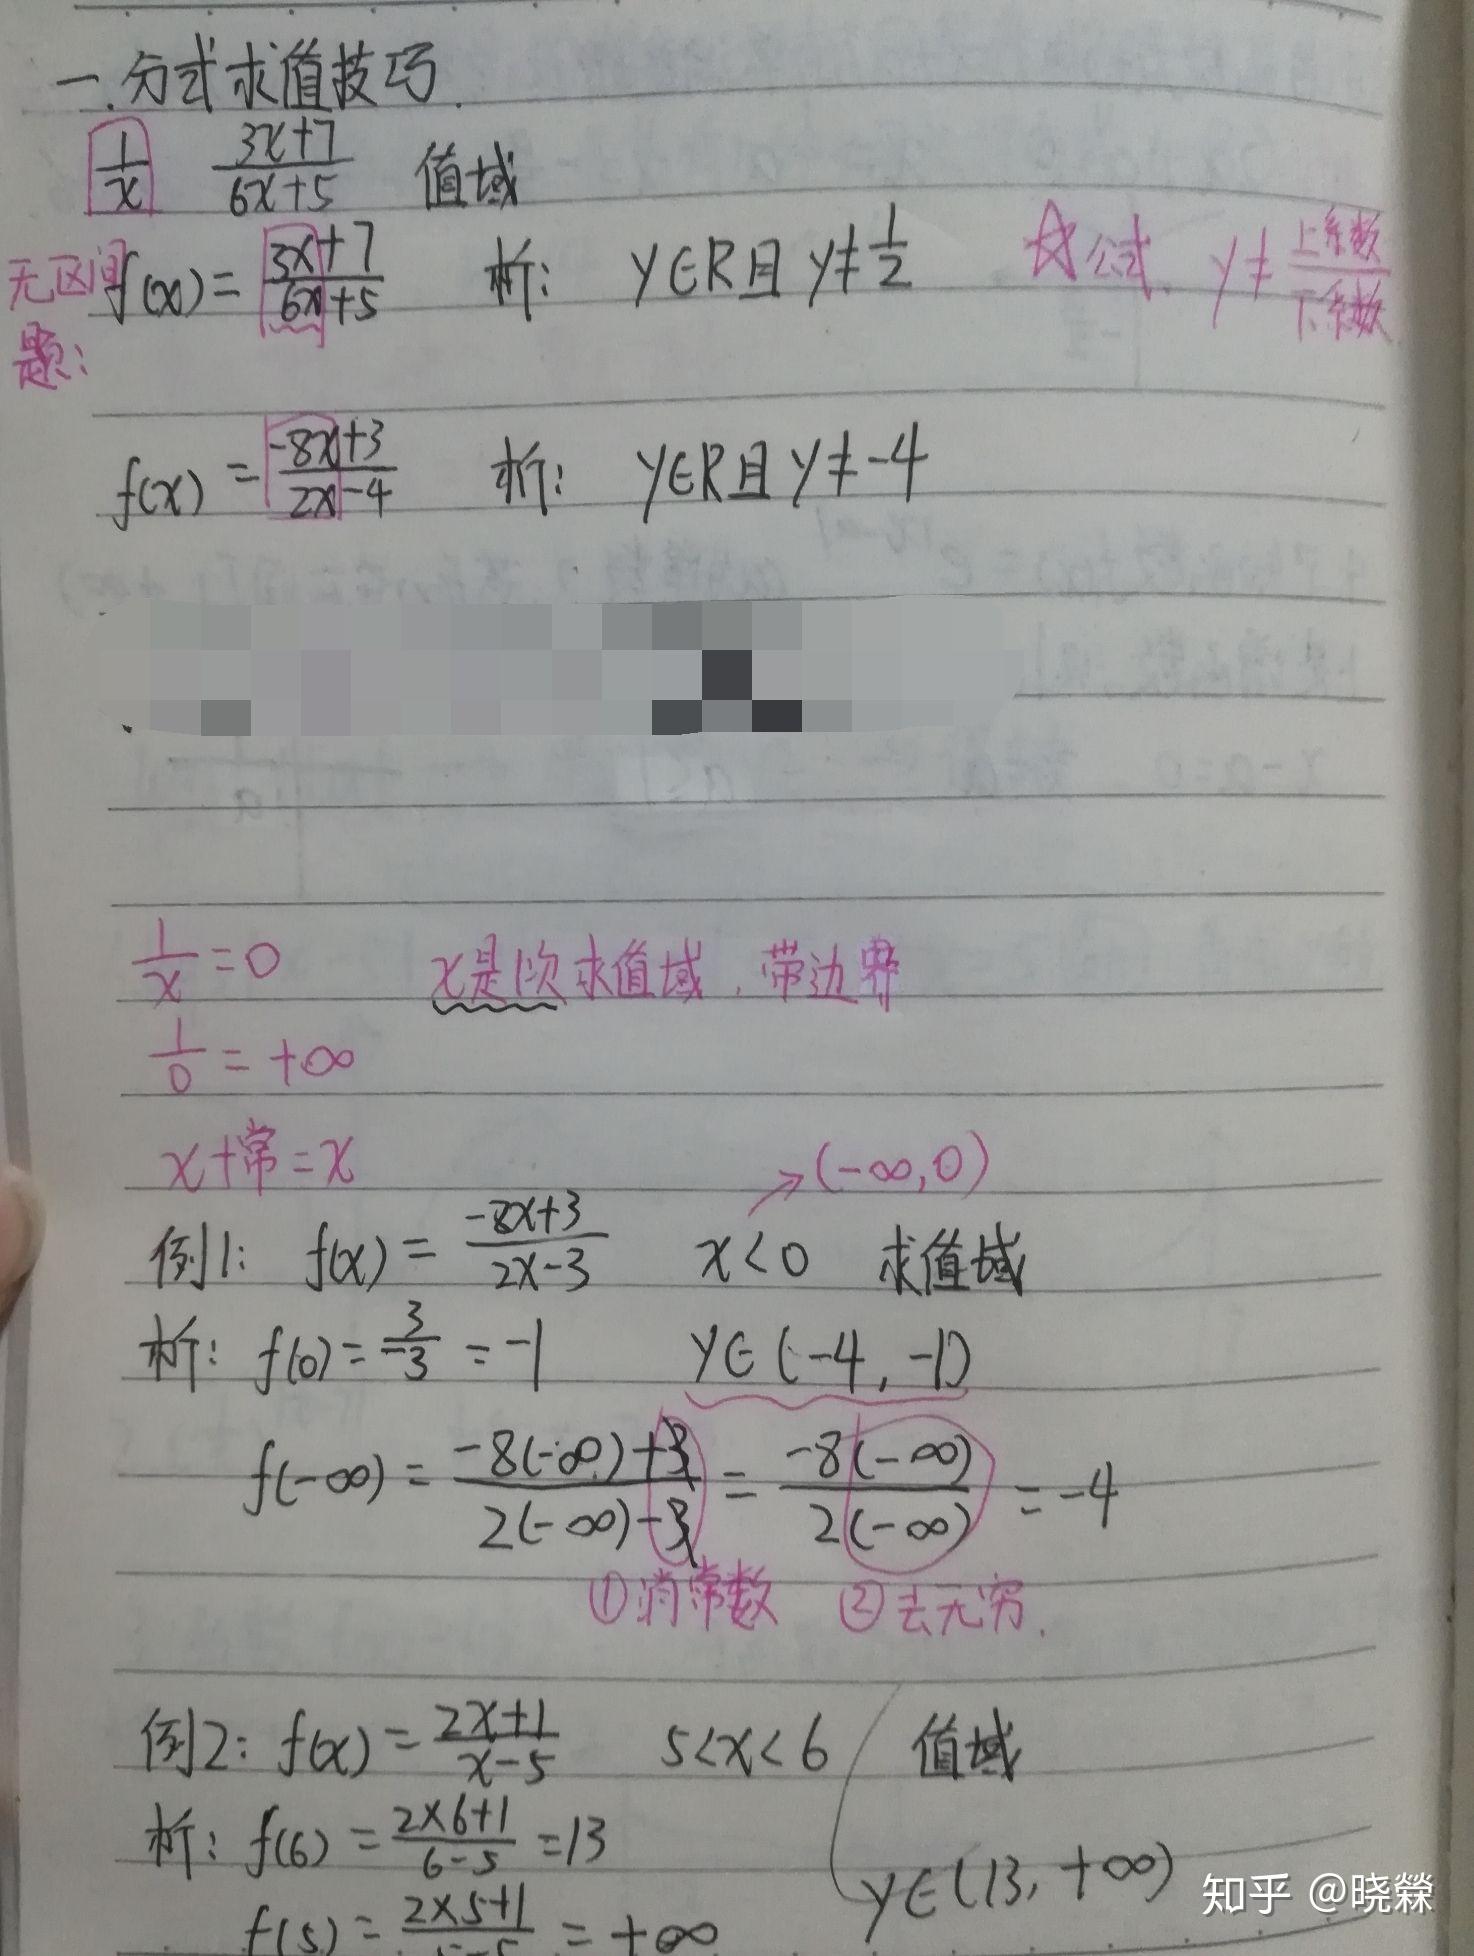 一.分式求值技巧.
1/x (3x+7)/(6x+5) 值域
无区间题: f(x)=(3x+7)/(6x+5) 析: y∈R且y≠1/2 ☆公式. y≠上系数/下系数
f(x)=(-8x+3)/(2x-4) 析: y∈R且y≠-4
1/x=0 x是1次求值域.带边界
1/0=+∞
x+常=x →(-∞,0)
例1: f(x)=(-8x+3)/(2x-3) x<0 求值域
析: f(0)=3/-3=-1 y∈(-4,-1)
f(-∞)=(-8(-∞)+3)/(2(-∞)-3)=(-8(-∞))/(2(-∞))=-4
①消常数 ②去无穷.
例2: f(x)=(2x+1)/(x-5) 5<x<6 值域
析: f(6)=(2×6+1)/(6-5)=13
y∈(13,+∞)
f(5)=(2×5+1)/(5-5)=+∞
知乎 @晓䋱